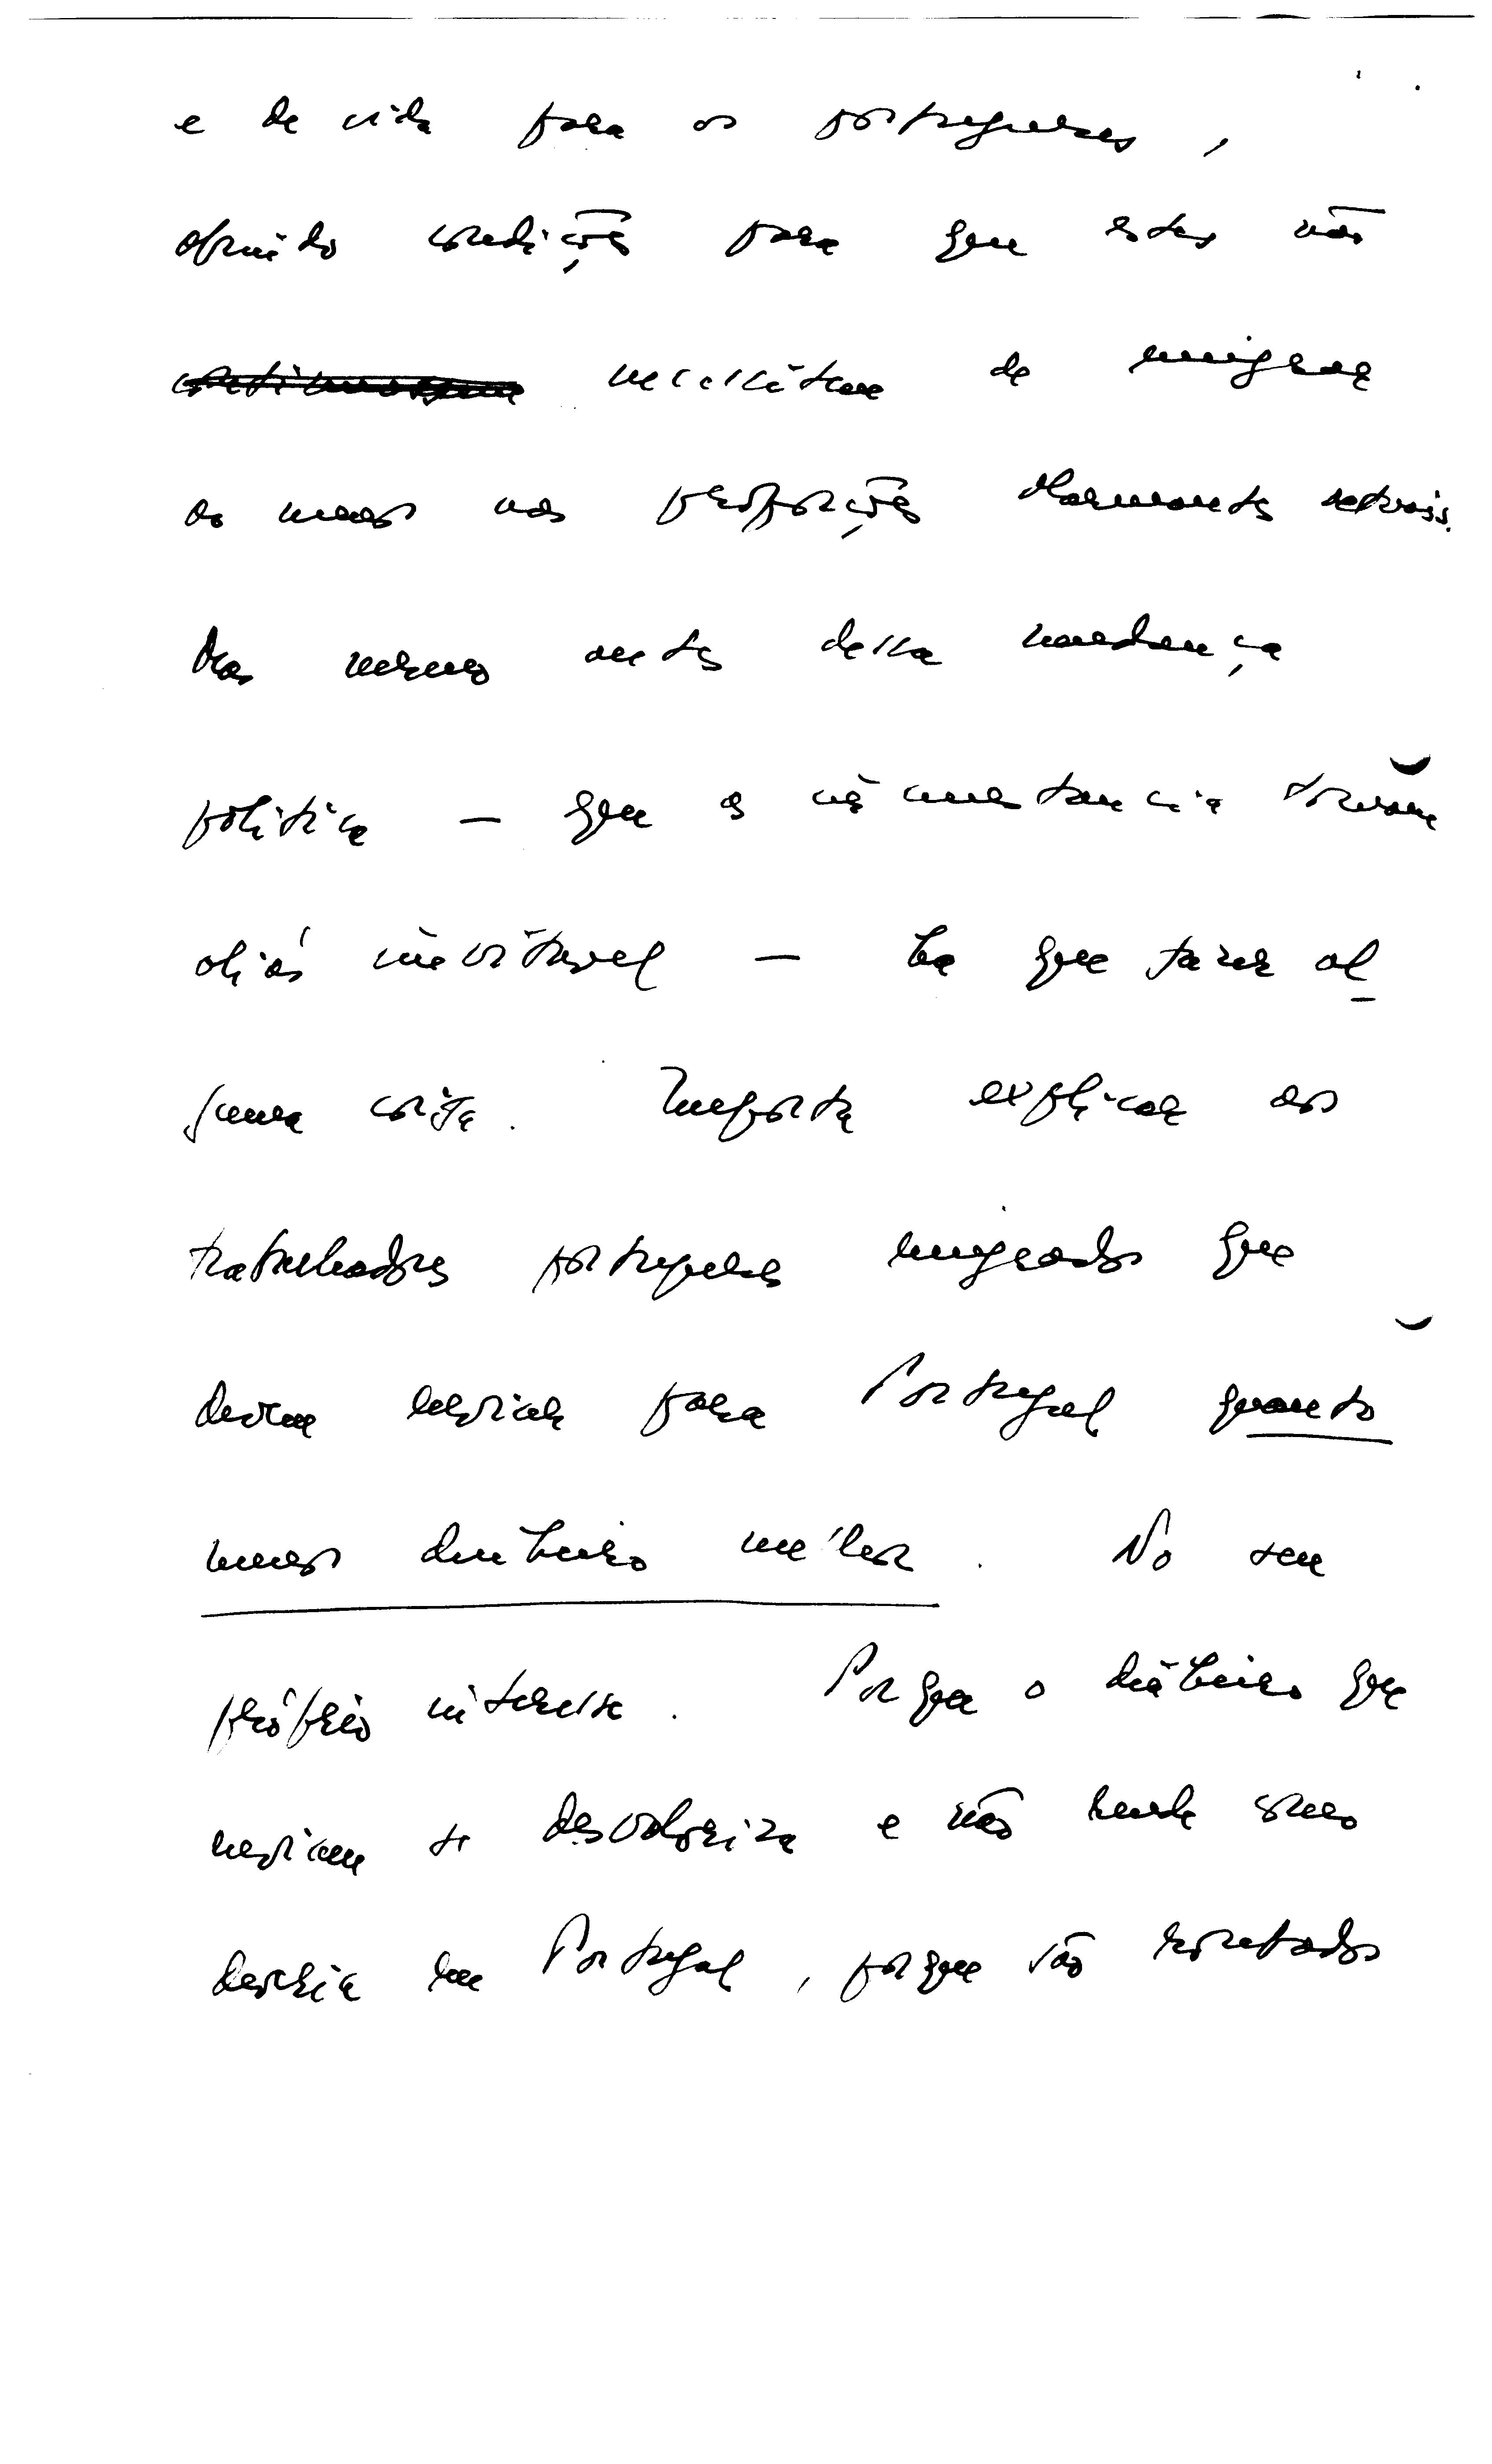 e de vida para os portugueses,
criando condições para que estes não
necessitem de emigrar
ao menos nas proporções alarmantes actuais.
Mas mesmo antes dessa mudança
política — que as circunstancias tornam
aliás inevitavel — ha que fazer al
guma coisa. Importa explicar aos
trabalhadores portugueses emigrados que
devem enviar para Portugal quanto
menos dinheiro melhor. No seu
próprio interesse. Porque o dinheiro que
enviam se desvaloriza e não rende como
deveria em Portugal, porque são roubados